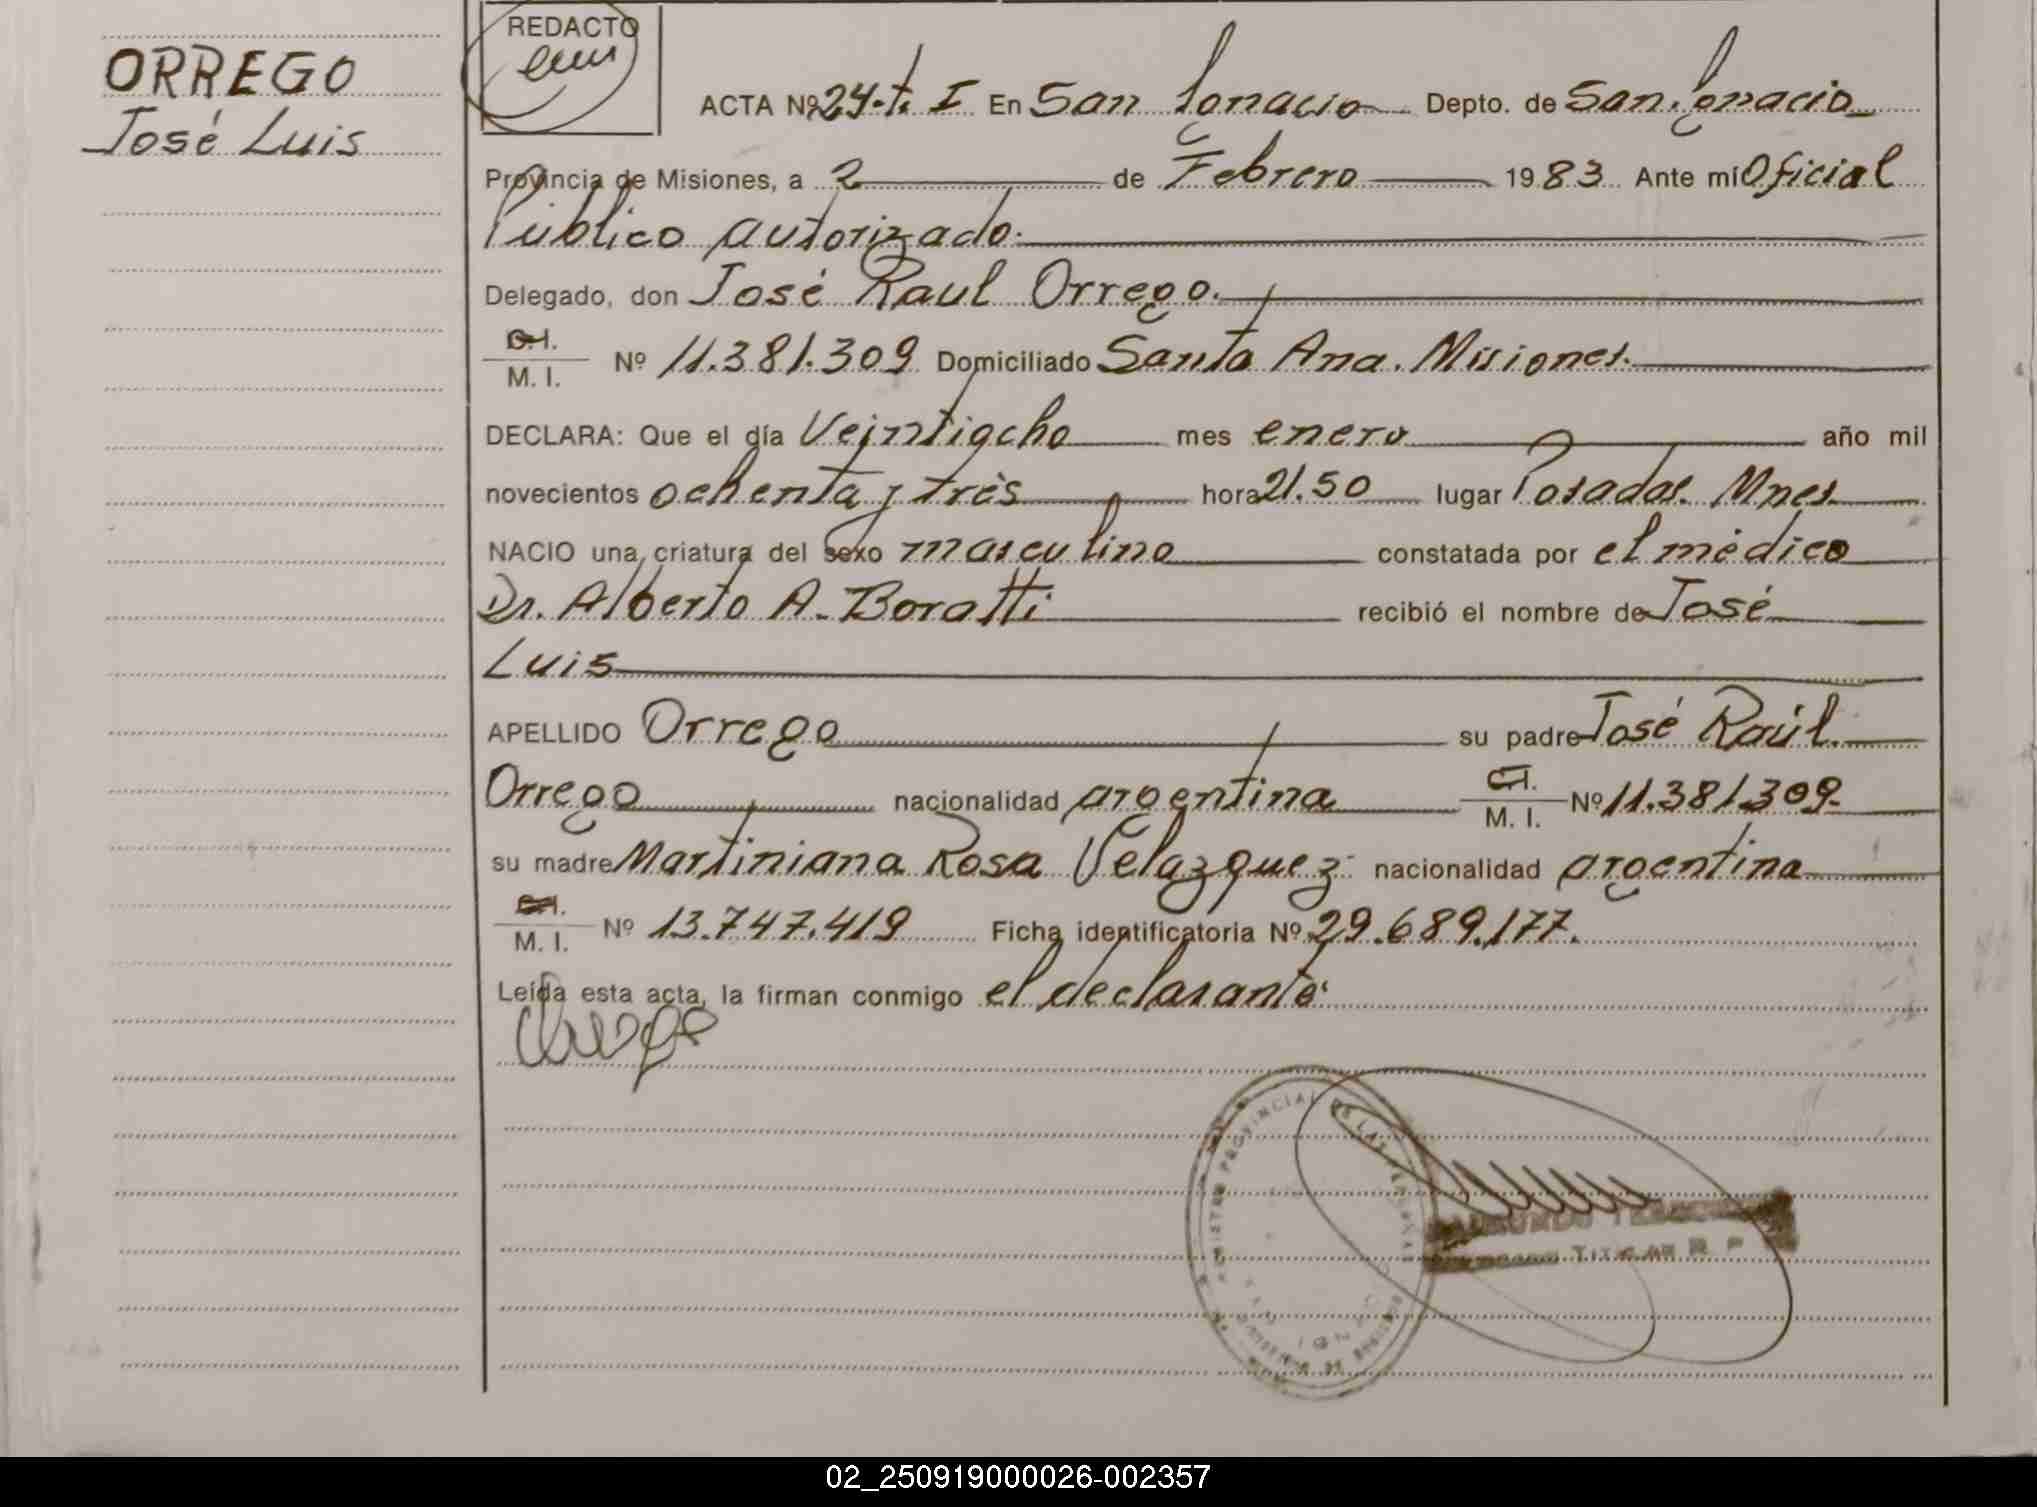 ORREGO
José Luis
REDACTO
ACTA Nº 24-t. I En San Ignacio Depto. de San Ignacio
Provincia de Misiones, a 2 de Febrero 1983 Ante mi Oficial
Público autorizado.
Delegado, don José Raul Orrego.
C.I.
M. I. Nº 11.381.309 Domiciliado Santa Ana. Misiones.
DECLARA: Que el día Veintiocho mes enero año mil
novecientos ochenta y trés hora 21.50 lugar Posadas. Mnes
NACIO una criatura del sexo masculino constatada por el médico
Dr. Alberto A. Boratti recibió el nombre de José
Luis
APELLIDO Orrego su padre José Raúl
Orrego nacionalidad argentina C.I. M. I. Nº 11.381.309.
su madre Martiniana Rosa Velazquez. nacionalidad argentina
C.I.
M. I. Nº 13.747.419 Ficha identificatoria Nº 29.689.177.
Leída esta acta, la firman conmigo el declarante
REGISTRO PROVINCIAL DE LAS PERSONAS
SAN IGNACIO
MISIONES
TITULAR R. P.
02_250919000026-002357